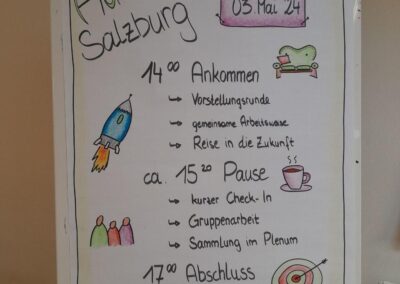 Salzburg
03. Mai '24
14⁰⁰ Ankommen
↳ Vorstellungsrunde
↳ gemeinsame Arbeitsweise
↳ Reise in die Zukunft
ca. 15²⁰ Pause
↳ kurzer Check-In
↳ Gruppenarbeit
↳ Sammlung im Plenum
17⁰⁰ Abschluss